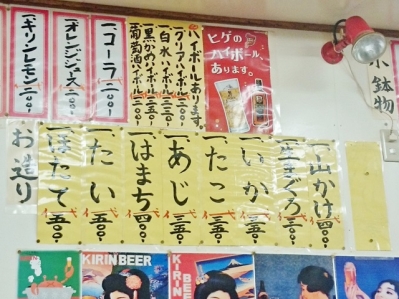 ヒゲの
ハイボール、
あります。
一、ハイボールあります。
一、クリアハイボール
一、白水ハイボール
一、黒かめハイボール
一、葡萄酒ハイボール 二〇〇
一、コーラ 二〇〇
一、オレンジジュース 二〇〇
一、キリンレモン 二〇〇
鉢物
一、山かけ 四〇〇
一、生まぐろ
一、いか 三五〇
一、たこ 三五〇
一、あじ 三五〇
一、はまち 四〇〇
一、たい 五〇〇
一、ほたて 五〇〇
お造り
KIRIN BEER
KIRIN
BEER